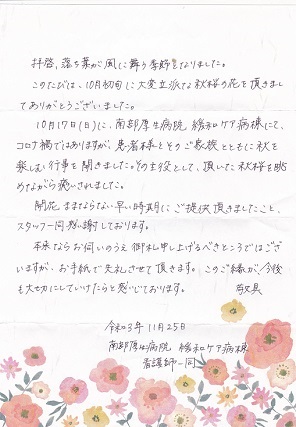 拝啓、落ち葉が風に舞う季節となりました。
このたびは、10月初旬に大変立派な秋桜の花を頂きまし
てありがとうございました。
10月17日(日)に、南部厚生病院 緩和ケア病棟にて、
コロナ禍ではありますが、患者様とそのご家族とともに秋を
楽しむ行事を開きました。その主役として、頂いた秋桜を眺
めながら癒やされました。
開花ままならない早い時期にご提供頂きましたこと、
スタッフ一同感謝しております。
本来ならお伺いのうえ御礼申し上げるべきところではござ
いますが、お手紙で失礼させて頂きます。このご縁が今後
も大切にしていけたらと感じております。 敬具
令和3年11月25日
南部厚生病院 緩和ケア病棟
看護師一同